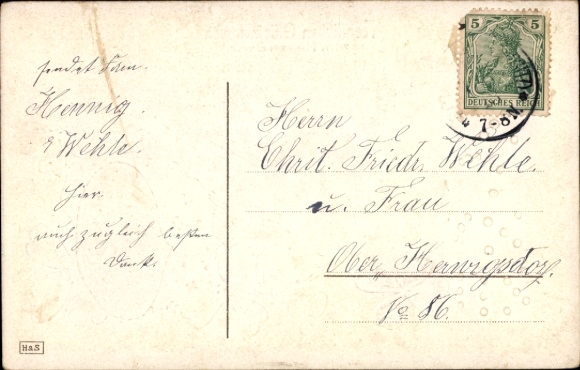 sendet Fam.
Hennig.
& Wehle.
Hier.
auch zugleich besten
Dank.
H&S
5 5
DEUTSCHES REICH
4 7-8N.
Herrn
Christ. Friedr. Wehle.
u. Frau
Ober Herwigsdorf.
No 86.